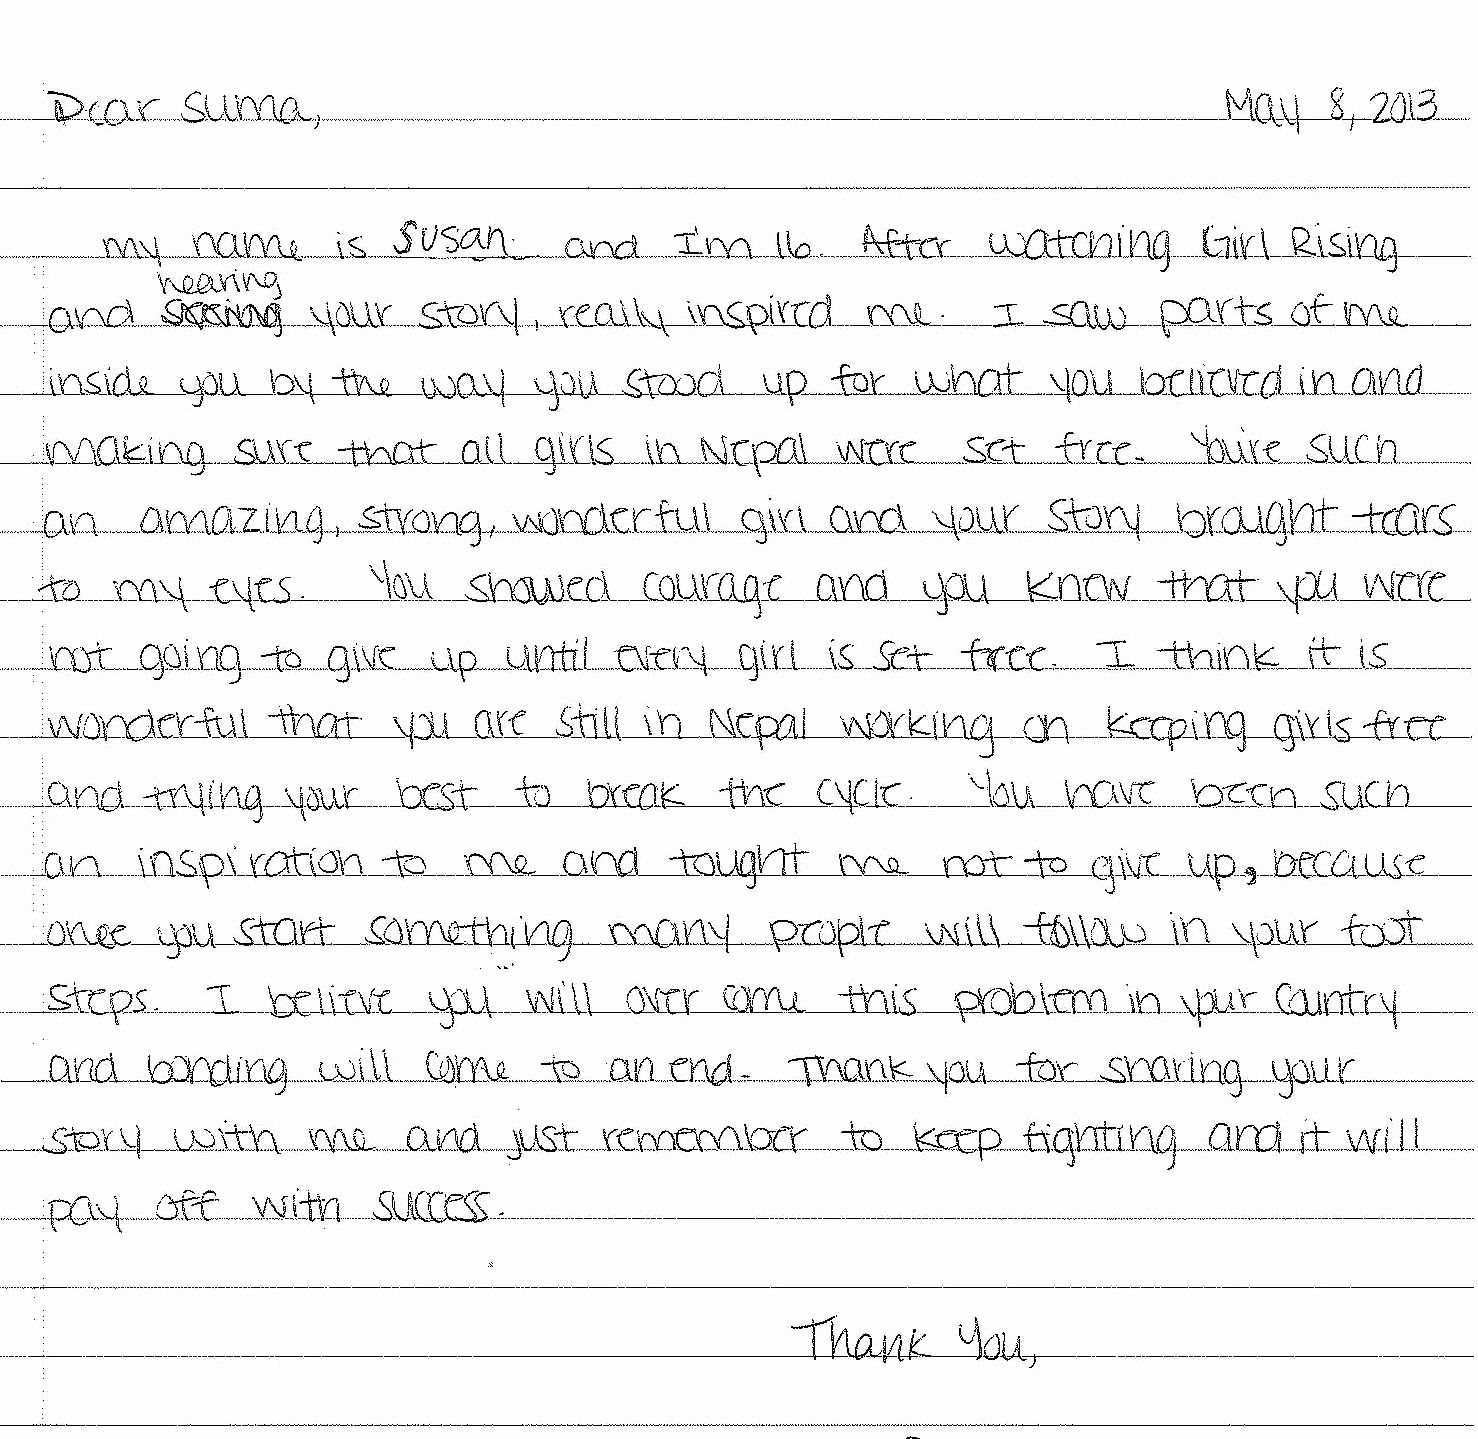 Dear Suma, May 8, 2013
my name is Susan and I'm 16. After watching Girl Rising
hearing
and your story, really inspired me. I saw parts of me
inside you by the way you stood up for what you believed in and
making sure that all girls in Nepal were set free. You're such
an amazing, strong, wonderful girl and your story brought tears
to my eyes. You showed courage and you knew that you were
not going to give up until every girl is set free. I think it is
wonderful that you are still in Nepal working on keeping girls free
and trying your best to break the cycle. You have been such
an inspiration to me and tought me not to give up, because
once you start something many people will follow in your foot
steps. I believe you will over come this problem in your country
and bonding will come to an end. Thank you for sharing your
story with me and just remember to keep fighting and it will
pay off with success.
Thank You,